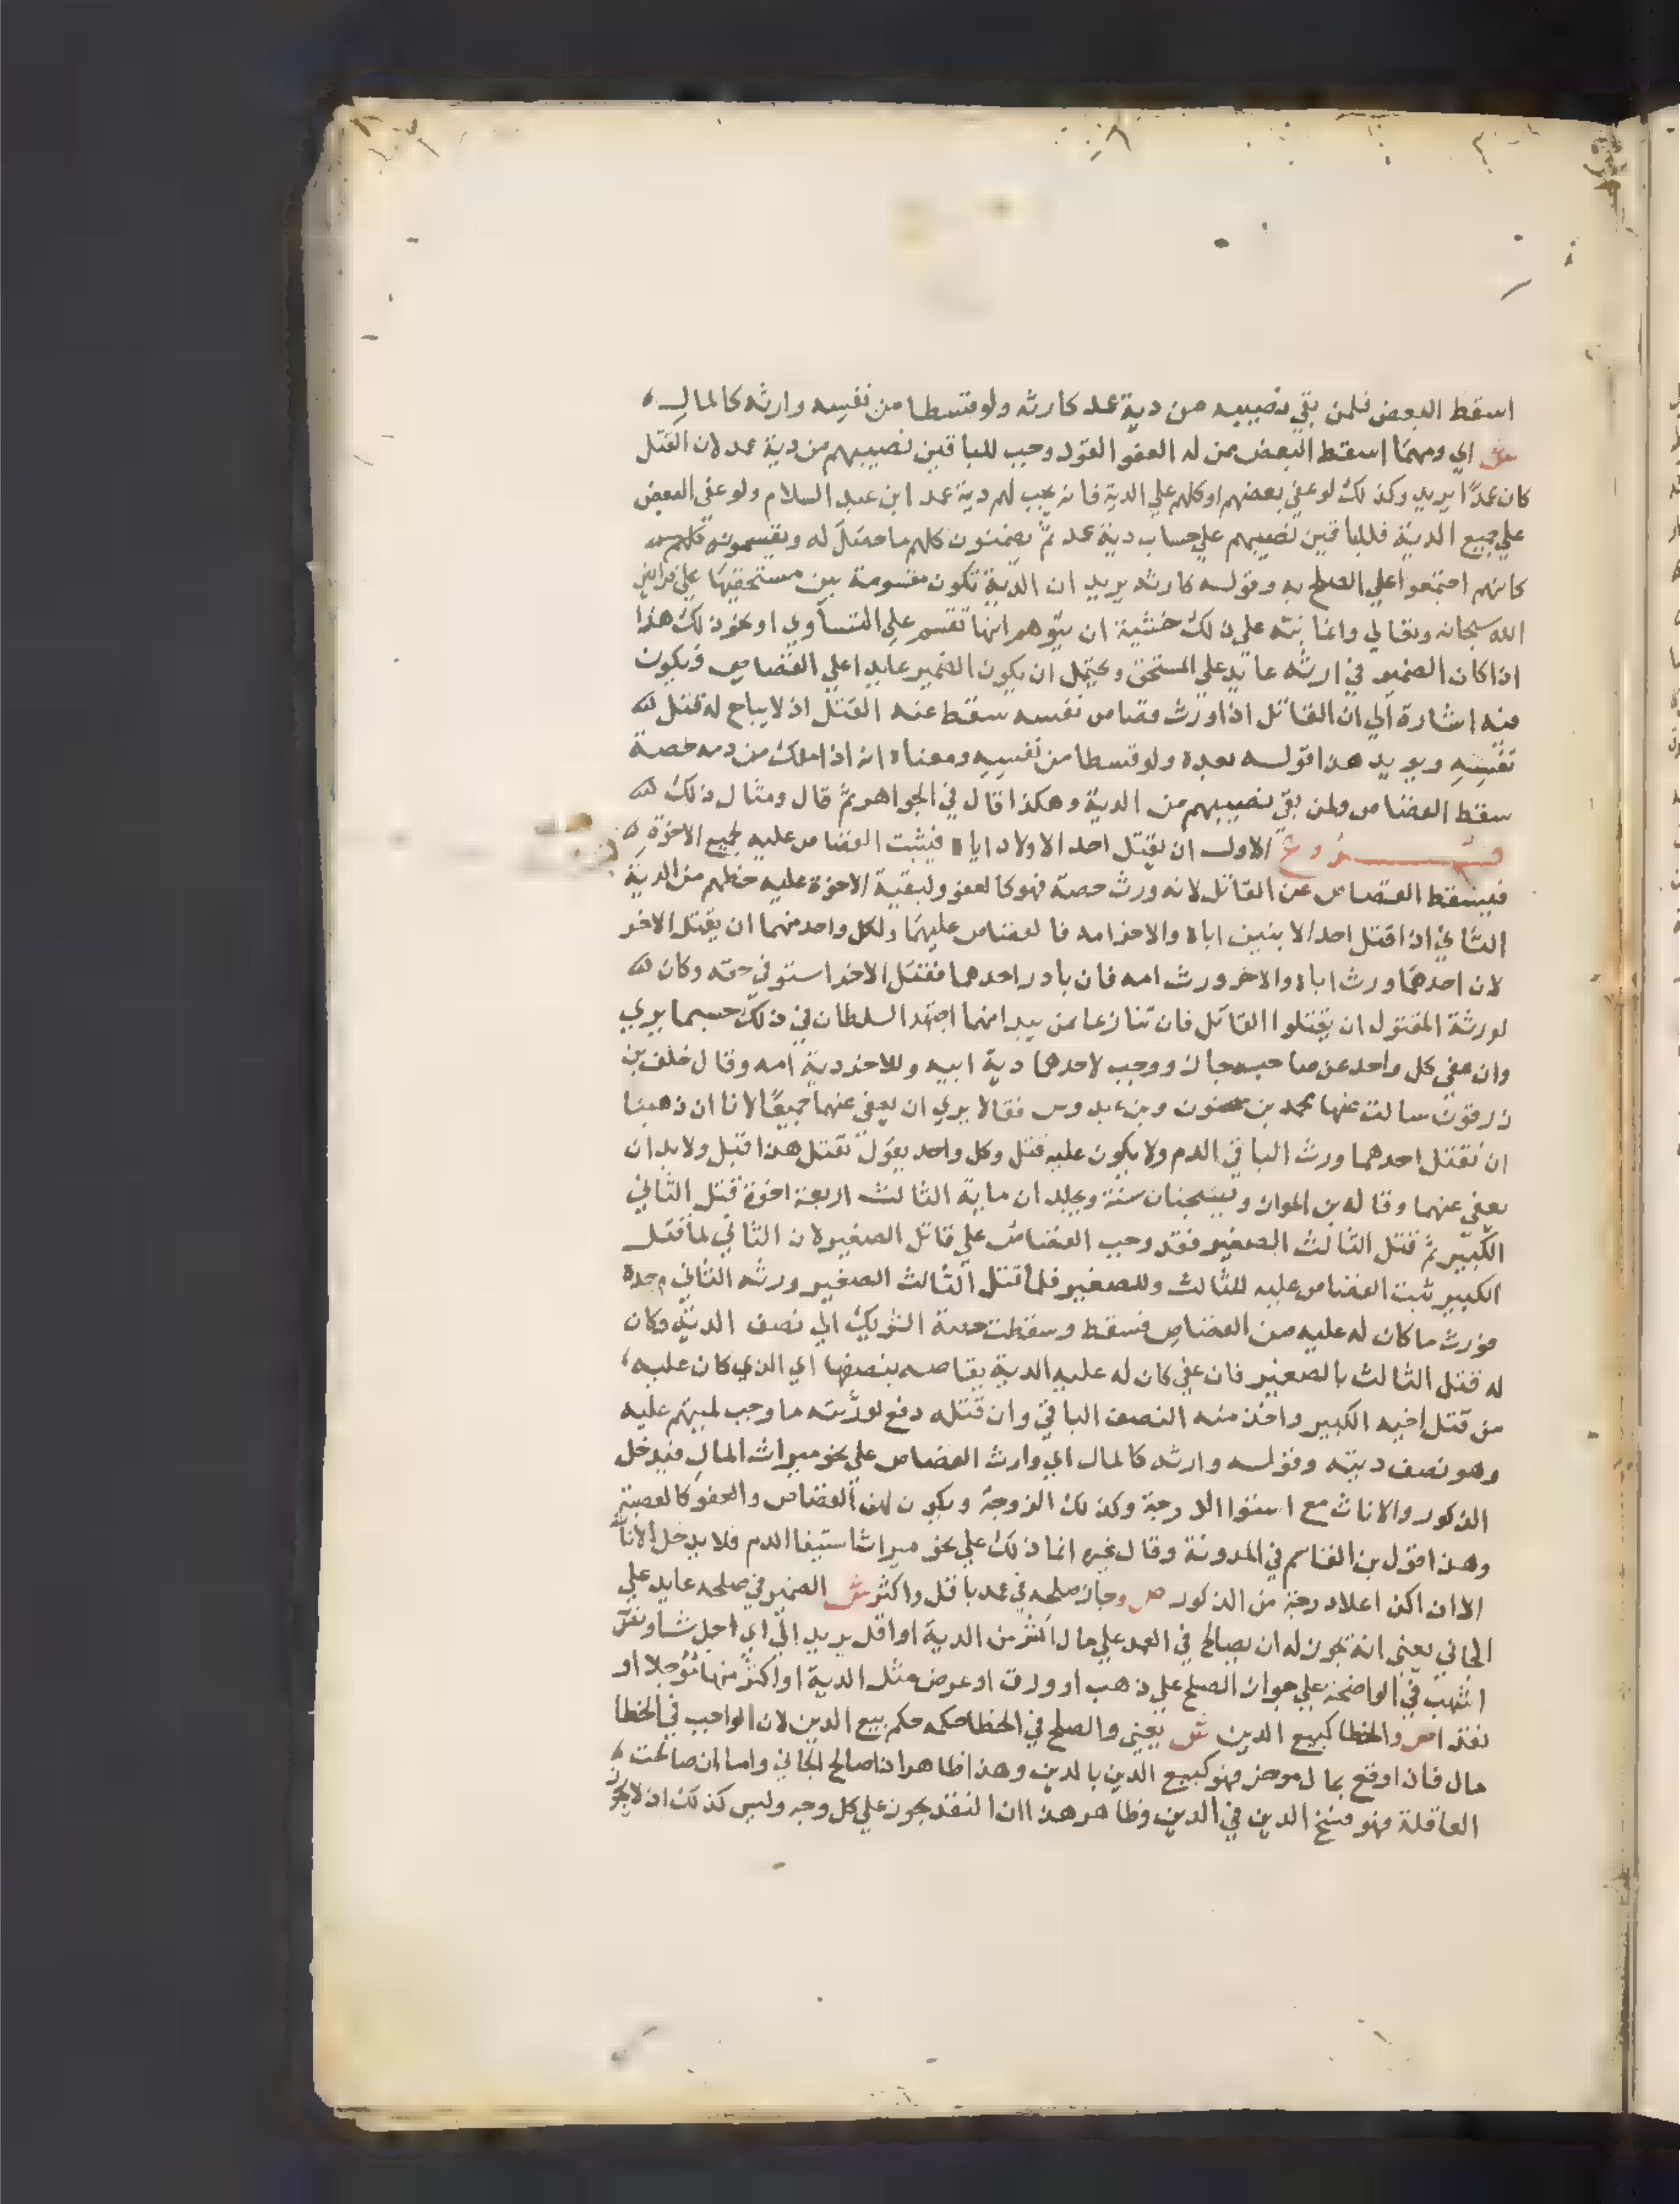 اسقط البعض فلمن بقي نصيبه من دية عمد كارثه ولو قسطا من نفسه وارثه كالمال
ش اي ومهما اسقط البعض ممن له العفو القود وجب للباقين نصيبهم من دية عمد لان القتل
كان عمدا يريد وكذلك لو عفي بعضهم او كلهم علي الدية فانه يجب لهم دية عمد ابن عبد السلام ولو عفي البعض
علي جميع الدية فللباقين نصيبهم علي حساب دية عمد ثم يضمنون كلهم ما حصل له ويقتسمونه كلهم
كانهم اجتمعوا علي الصلح به وقوله كارثه يريد ان الدية تكون مقسومة بين مستحقيها علي فرايض
الله سبحانه وتعالي وانما نبه علي ذلك خشية ان يتوهم انها تقسم علي التساوي او نحو ذلك هذا
اذا كان الضمير في ارثه عايد علي المستحق ويحتمل ان يكون الضمير عايدا علي القصاص فيكون
منه اشارة الي ان القاتل اذا ورث قصاص نفسه سقط عنه القتل اذ لا يباح له قتل
نفسه ويويد هذا قوله بعده ولو قسطا من نفسه ومعناه انه اذا ملك من دمه حصة
سقط القصاص ولمن بقي نصيبهم من الدية وهكذا قال في الجواهر ثم قال ومثال ذلك
فروع الاول ان يقتل احد الاولاد اباه فيثبت القصاص عليه لجميع الاخوة
فيسقط القصاص عن القاتل لانه ورث حصة فهو كالعفو ولبقية الاخوة عليه حظهم من الدية
الثاني اذا قتل احد الابنين اباه والاخر امه فالقصاص عليهما ولكل واحد منهما ان يقتل الاخر
لان احدهما ورث اباه والاخر ورث امه فان بادر احدهما فقتل الاخر استوفي حقه وكان
لورثة المقتول ان يقتلوا القاتل فان تنازعا من يبدا منهما اجتهد السلطان في ذلك حسبما يري
وان عفي كل واحد عن صاحبه جاز ووجب لاحدهما دية ابيه وللاخر دية امه وقال خلف بن
زرقون سالت عنها محمد بن سحنون وبن عبدوس فقالا يري ان يعفي عنهما جميعا لانا ان ذهبنا
ان نقتل احدهما ورث الباقي الدم ولا يكون عليه قتل وكل واحد يقول نقتل هذا قبل ولا بد ان
يعفي عنهما وقاله بن المواز ويسجنان سنة ويجلدان ماية الثالث اربعة اخوة قتل الثاني
الكبير ثم قتل الثالث الصغير فقد وجب القصاص علي قاتل الصغير لان الثاني لما قتل
الكبير ثبت القصاص عليه للثالث وللصغير فلما قتل الثالث الصغير ورثه الثاني وحده
فورث ما كان له عليه من القصاص فسقط وسقطت حصة الشريك الي نصف الدية وكان
له قتل الثالث بالصغير فان عفي كان له عليه الدية يقاصه بنصفها اي الذي كان عليه
من قتل اخيه الكبير واخذ منه النصف الباقي وان قتله دفع لورثته ما وجب لميتهم عليه
وهو نصف ديته وقوله وارثه كالمال اي وارث القصاص علي نحو ميراث المال فيدخل
الذكور والاناث مع استوا الدرجة وكذلك الزوجة ويكون لهن القصاص والعفو كالعصبة
وهذا قول بن القاسم في المدونة وقال غيره انما ذلك علي نحو ميراث استيفا الدم فلا يدخل الاناث
الا ان اكن اعلا درجة من الذكور ص وجاز صلحه في عمد باقل واكثر ش الضمير في صلحه عايد علي
الجاني يعني انه يجوز له ان يصالح في العمد علي مال اكثر من الدية او اقل يريد الي اي اجل شا ونص
اشهب في الواضحة علي جواز الصلح علي ذهب او ورق او عرض مثل الدية او اكثر منها مؤجلا او
نقدا ص والخطا كبيع الدين ش يعني والصلح في الخطا حكمه حكم بيع الدين لان الواجب في الخطا
مال فاذا وقع بمال موخر فهو كبيع الدين بالدين وهذا ظاهر اذا صالح الجاني واما ان صالحت
العاقلة فهو فسخ الدين في الدين وظاهر هذا ان النقد يجوز علي كل وجه وليس كذلك اذ لا يجوز